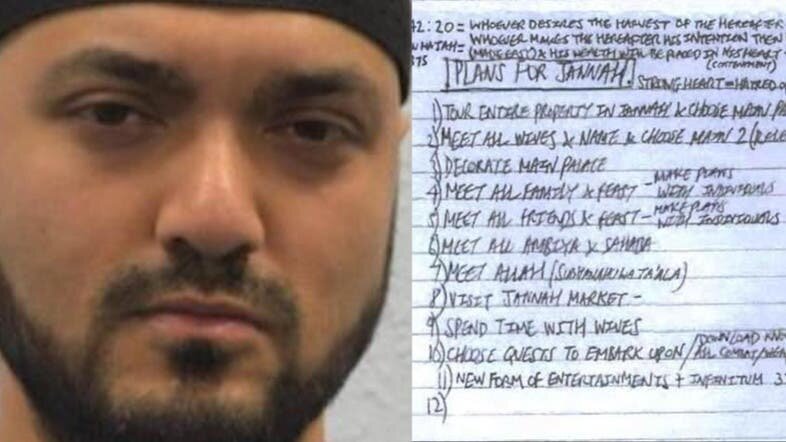 42:20 = WHOEVER DESIRES THE HARVEST OF THE HEREAFTER
WHOEVER MAKES THE HEREAFTER HIS INTENTION THEN
(MADE EASY) & HIS WEALTH WILL BE PLACED IN HIS HEART
(CONTENTMENT)
PLANS FOR JANNAH.
STRONG HEART = HATRED OF
1) TOUR ENTIRE PROPERTY IN JANNAH & CHOOSE MAIN
2) MEET ALL WIVES & NAME & CHOOSE MAIN 2
3) DECORATE MAIN PALACE
4) MEET ALL FAMILY & FEAST - MAKE PLANS WITH INDIVIDUALS
5) MEET ALL FRIENDS & FEAST - MAKE PLANS WITH INDIVIDUALS
6) MEET ALL AMBIYA & SAHABA
7) MEET ALLAH (SUBHANAHU WA TA'ALA)
8) VISIT JANNAH MARKET -
9) SPEND TIME WITH WIVES
10) CHOOSE QUESTS TO EMBARK UPON / DOWNLOAD
11) NEW FORM OF ENTERTAINMENTS + INFINITUM
12)